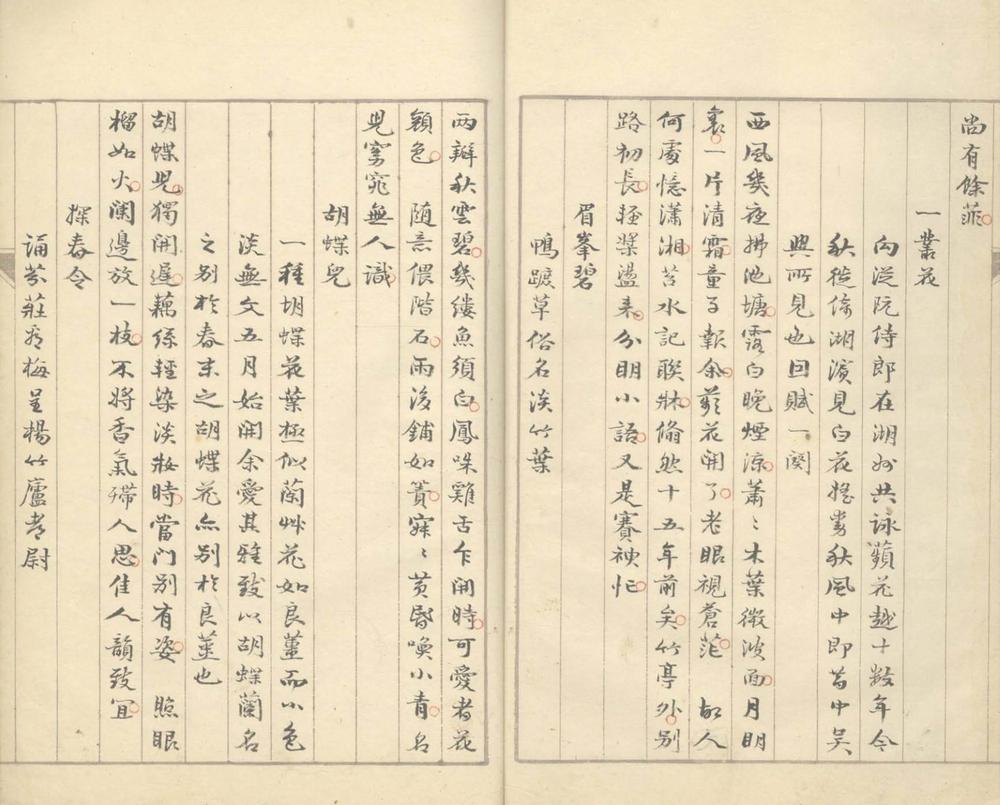 尚有餘菲
一叢花
向從阮侍郎在湖州共詠蘋花越十數年今
秋從倚湖濱見白花搖曳秋風中即昔中吳
興所見也回賦一闋
西風幾夜拂池塘露白晚煙涼蕭〻木葉微波面月明
裏一片清霜童子報余蘋花開了老眼視蒼茫　故人
何處憶瀟湘苕水記聯牀翛然十五年前矣竹亭外別
路初長輕槳盪來分明小語又是賽神忙
眉峯碧
鴨蹠草俗名淡竹葉
兩瓣秋雲碧幾縷魚須白鳳咮雞舌乍開時可愛者花
顏色　隨意偎階石雨後鋪如簀寂〻黃昏喚小青名
兒窈窕無人識
胡蝶兒
一種胡蝶花葉極似蘭艸花如良薑而小色
淡無文五月始開余愛其雅致以胡蝶蘭名
之別於春末之胡蝶花亦別於良薑也
胡蝶兒獨開遲藕絲輕染淡妝時當門別有姿　照眼
榴如火闌邊放一枝不將香氣殢人思佳人韻致宜
探春令
誦芬莊看梅呈楊竹廬都尉